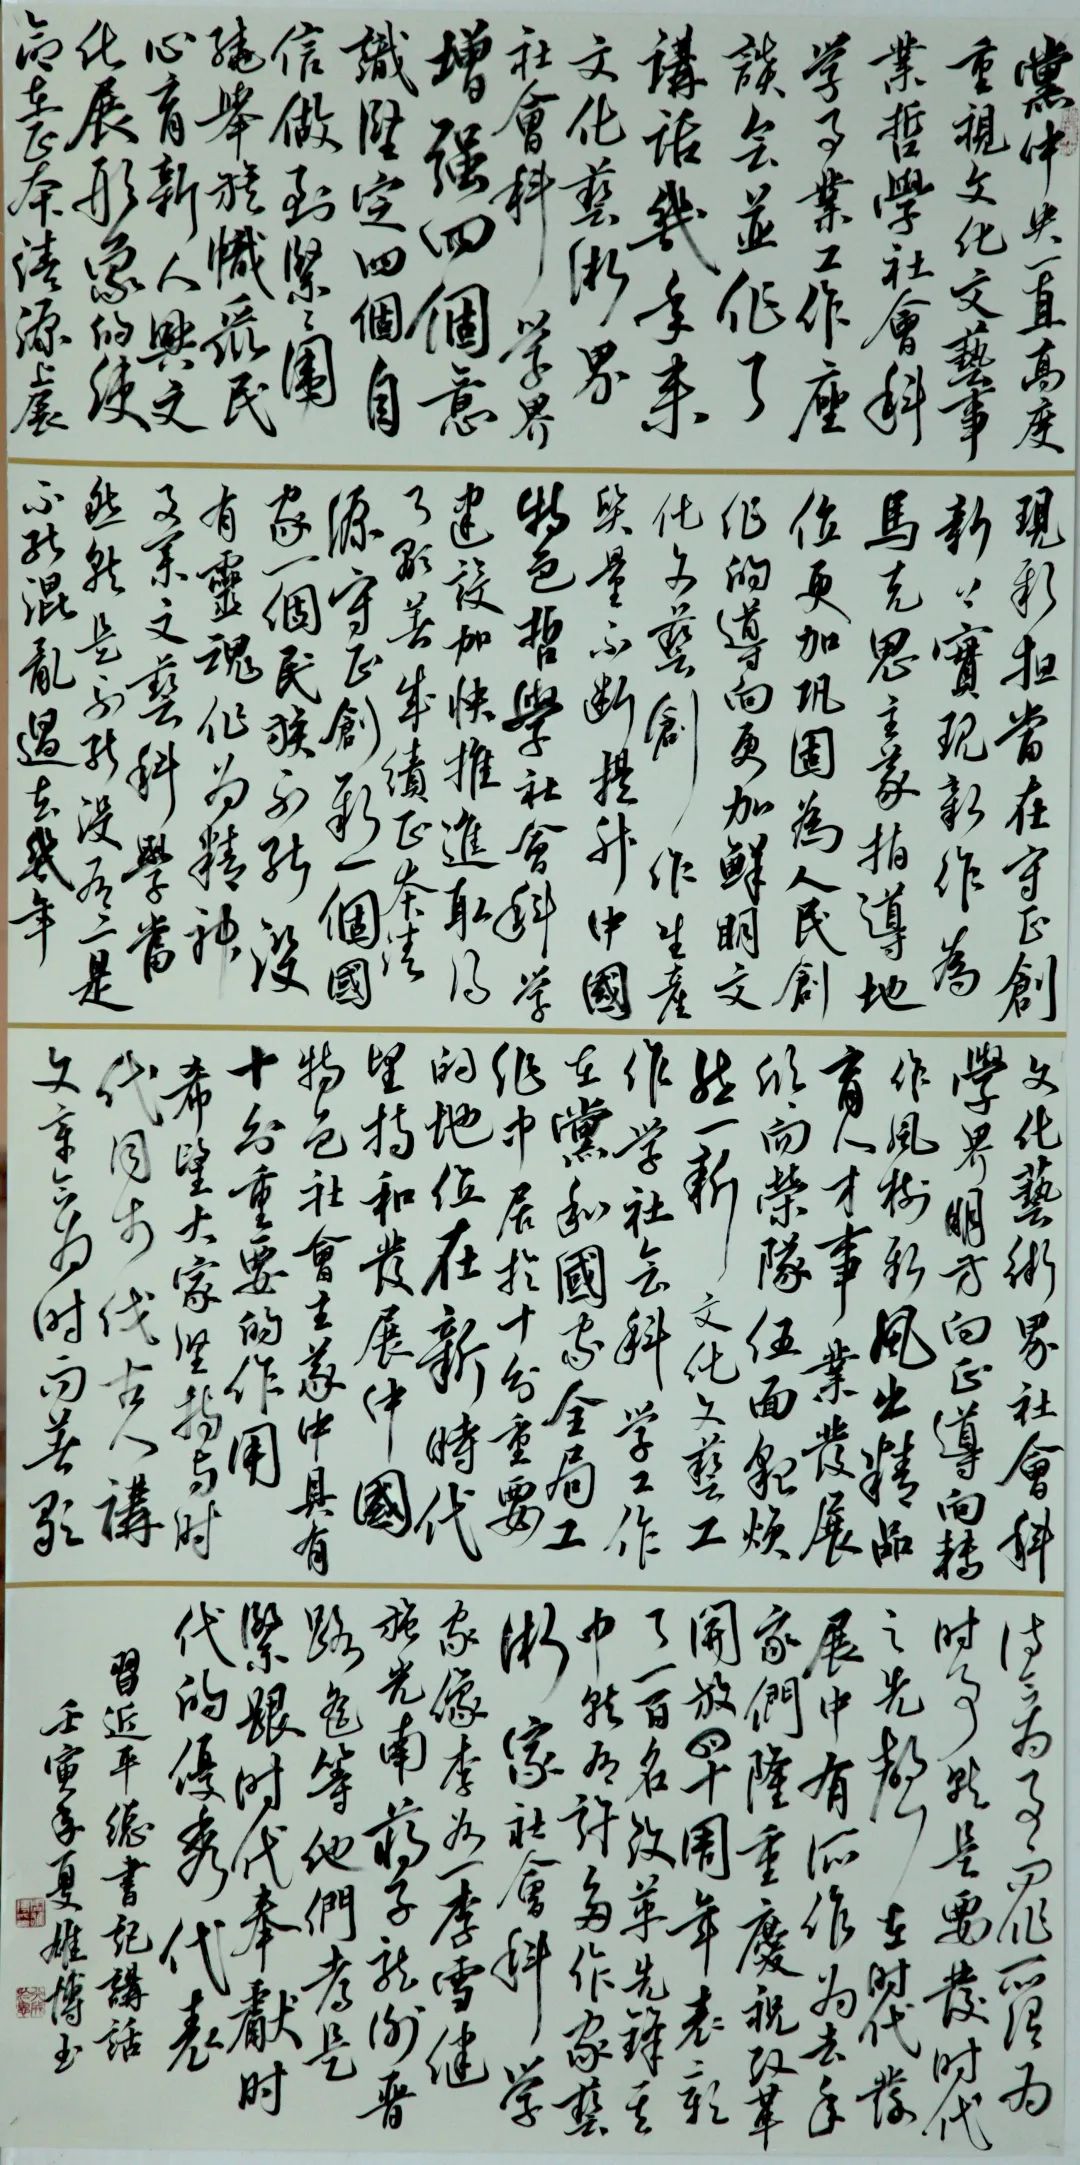 黨中央一直高度
重視文化文藝事
業哲學社會科
学事業工作座
談会並作了
講話幾年来
文化藝術界
社會科学界
增强四個意
識堅定四個自
信做到緊〻圍
繞舉旗幟聚民
心育新人興文
化展形象的使
命在正本清源上展
現新担當在守正創
新上實現新作為
馬克思主義指導地
位更加巩固為人民創
作的導向更加鮮明文
化文藝創作生産
质量不断提升中國
特色哲學社會科学
建設加快推進取得
了顯著成績正本清
源守正創新一個國
家一個民族不能没
有靈魂作为精神
事業文藝科學當
然就是不能没有二是
不能混亂過去幾年
文化藝術界社會科
學界明方向正導向转
作風树新風出精品
育人才事業發展
欣而榮隊伍面貌焕
然一新文化文藝工
作学社会科学工作
在黨和國家全局工
作中居於十分重要
的地位在新時代
坚持和發展中國
特色社會主義中具有
十分重要的作用
希望大家坚持与时
代同步伐古人講
文章合为时而著歌
诗合为事而作所谓为
时事就是要發时代
之先聲在时代發
展中有所作为去年
我們隆重慶祝改革
開放四十周年表彰
了一百名改革先鋒其
中就有許多作家藝
術家社會科学
家像李谷一李雪健
施光南蔣子龍谢晋
路遥等他們都是
緊跟时代奉獻时
代的優秀代表
習近平總書記講話
壬寅年夏雄博书